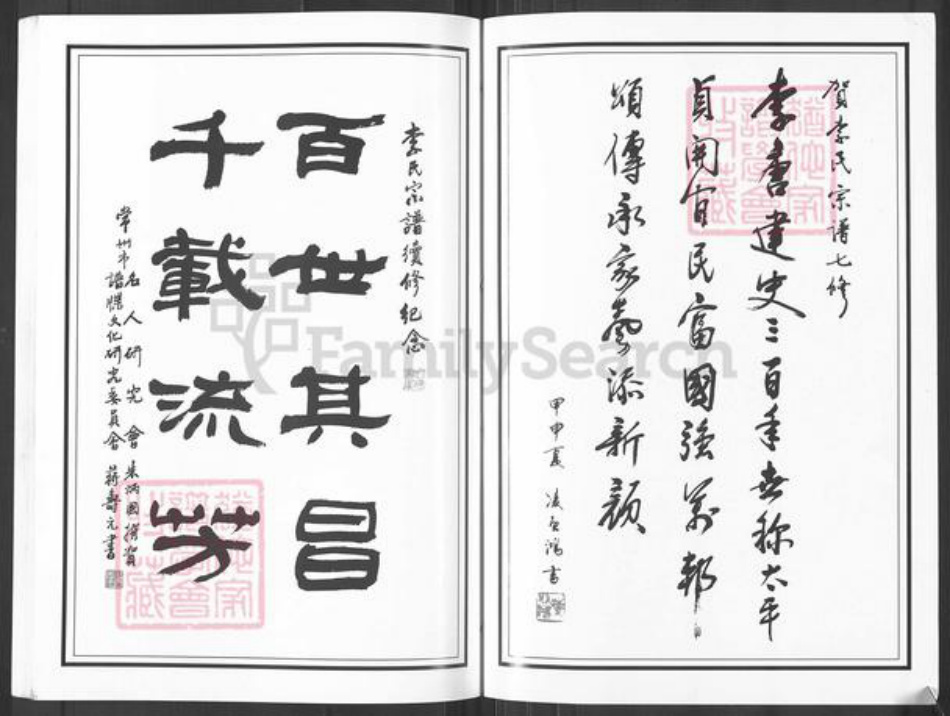 賀李氏宗譜七修
李唐建史三百年世称太平
貞開官民富國強萬邦
頌傳承家風添新顏
甲申夏
書
李氏宗譜續修紀念
百世其昌
千載流芳
常州市名人研究會
譜牒文化研究委員會
朱炳國撰賀
蔣壽元書
FamilySearch